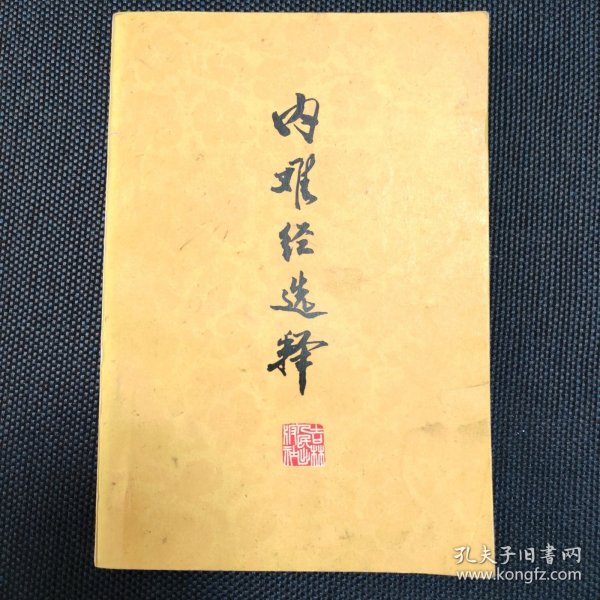 内难经选释
吉林
人民出
版社
孔夫子旧书网
www.kongfz.com